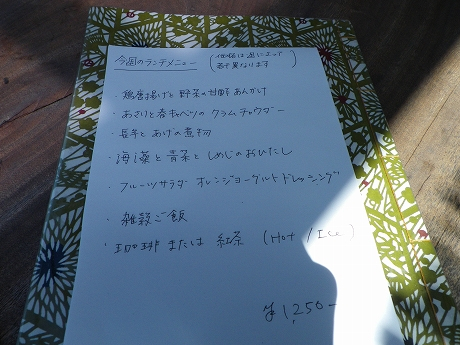 今週のランチメニュー
(価格は週によって
若干異なります)
・鶏唐揚げと野菜の甘酢あんかけ
・あさりと春キャベツのクラムチャウダー
・長芋とあげの煮物
・海藻と青菜としめじのおひたし
・フルーツサラダ オレンジヨーグルトドレッシング
・雑穀ご飯
・珈琲 または 紅茶 (Hot / Ice)
¥1,250-